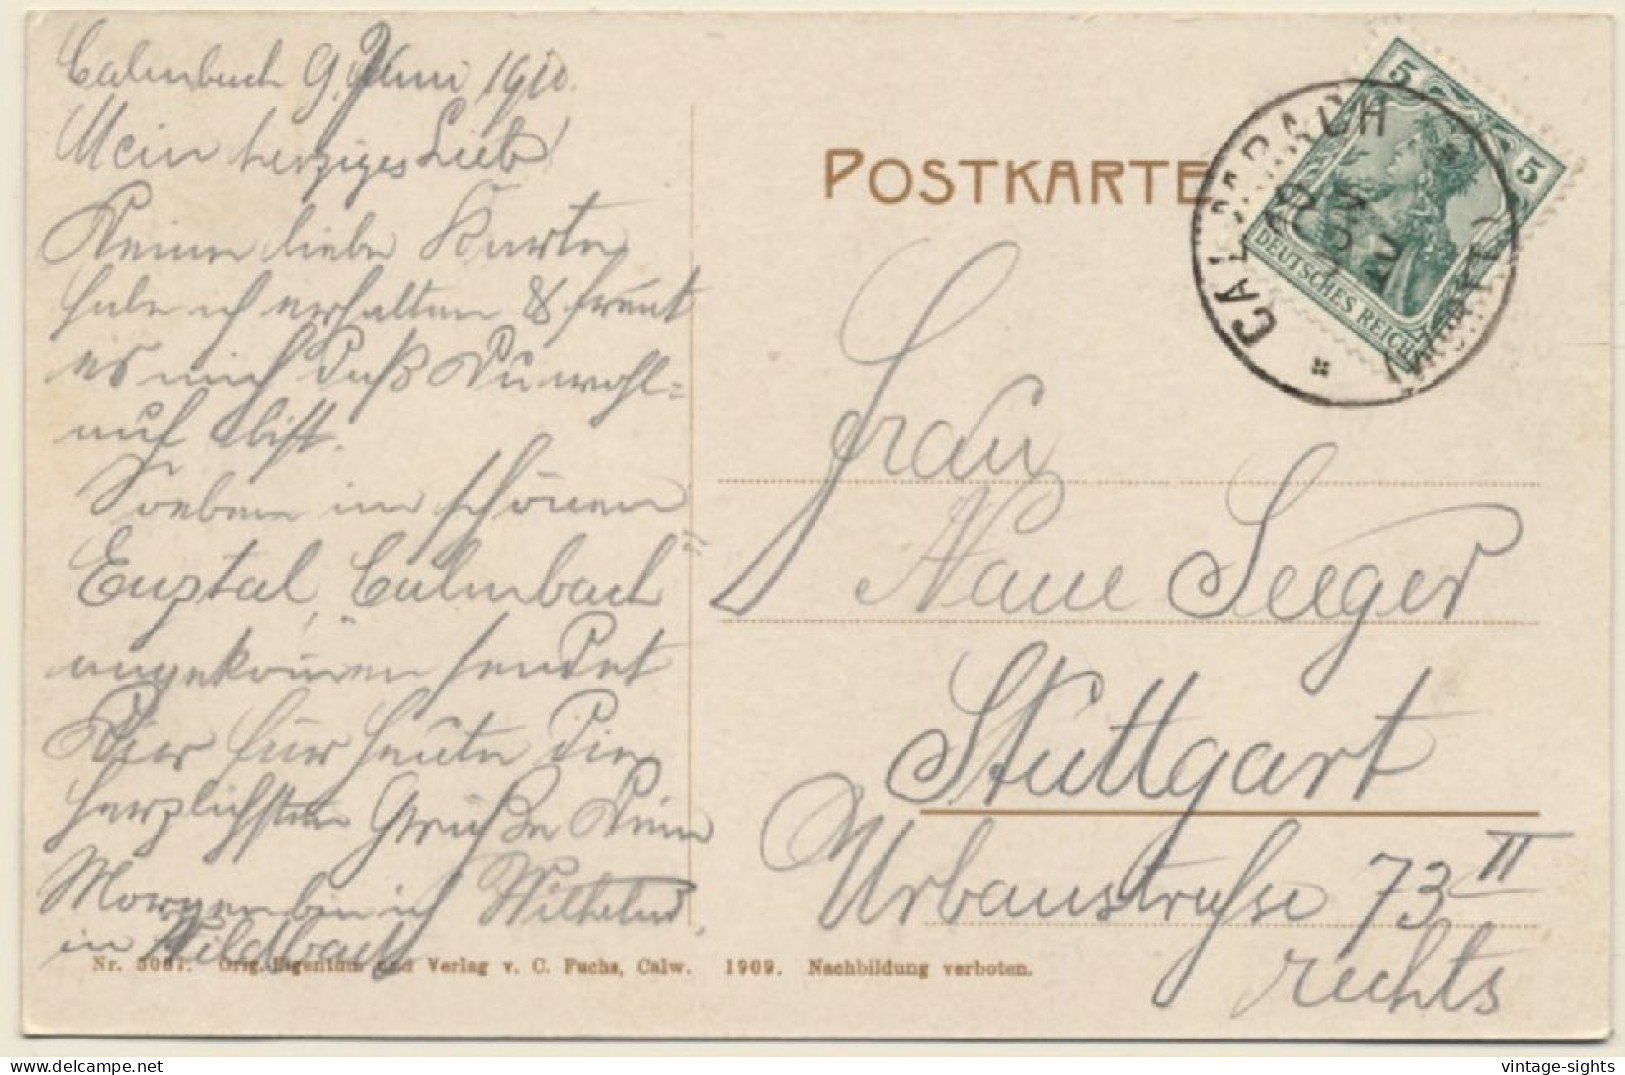 Calmbach 9. Juni 1910.
Mein herziges Lieb!
Deine liebe Karte
habe ich erhalten & freut
es mich daß Du wohl=
auf bist.
Soeben im schönen
Enztal, "Calmbach"
angekom̄en sendet
Dir für heute die
herzlichsten Grüße Dein
Morgen bin ich Wilhelm.
in Wildbad
POSTKARTE
5 5
DEUTSCHES REICH
CALMBACH
JUN
Frau
Seeger
Stuttgart
Urbanstraße 73 II
rechts
Nr. 5087. Orig. Eigentum und Verlag v. C. Fuchs, Calw. 1909. Nachbildung verboten.
delcampe.net
vintage-sights